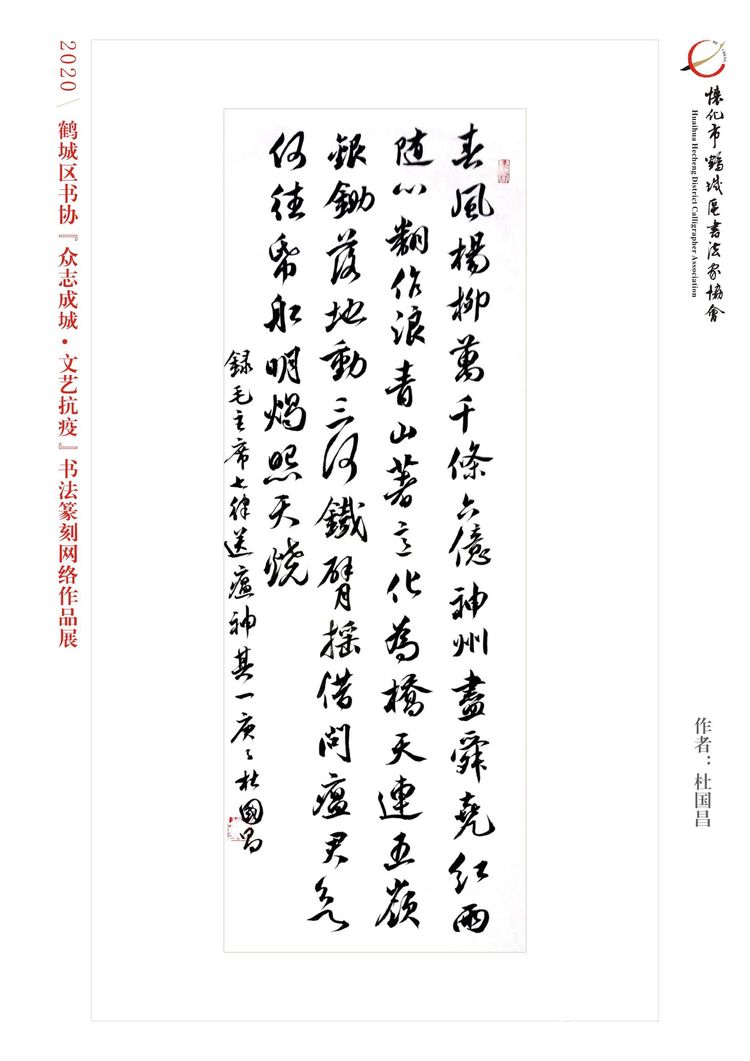 懷化市鶴城區書法家協會
Huaihua Hecheng District Calligrapher Association
作者：杜国昌
春風楊柳萬千條六億神州盡舜堯紅雨
随心翻作浪青山著意化為橋天連五嶺
銀鋤落地動三河鐵臂摇借問瘟君欲
何往帋船明燭照天燒
録毛主席七律送瘟神其一庚子杜國昌
2020 / 鹤城区书协『众志成城·文艺抗疫』书法篆刻网络作品展